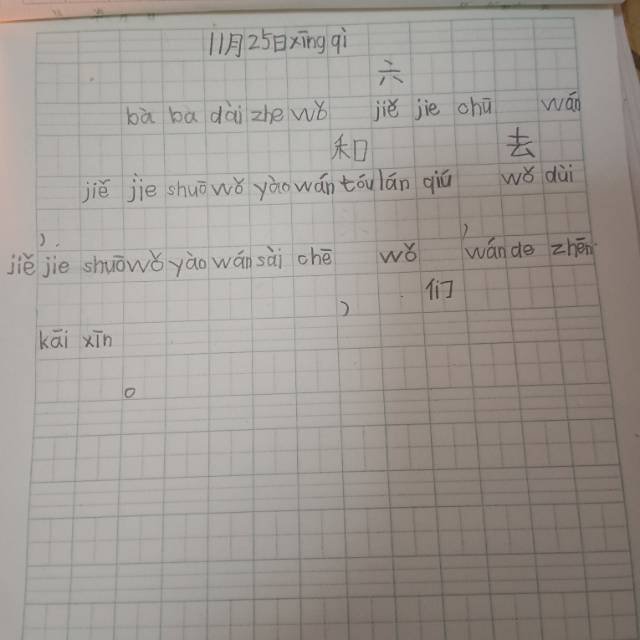 11月25日xīng qì六
bà ba dài zhe wǒ和jiě jie chū去wán
jiě jie shuō wǒ yào wán tóu lán qiú, wǒ dùi
), jiě jie shuō wǒ yào wán sài chē, wǒ们wán de zhēn
kāi xīn。